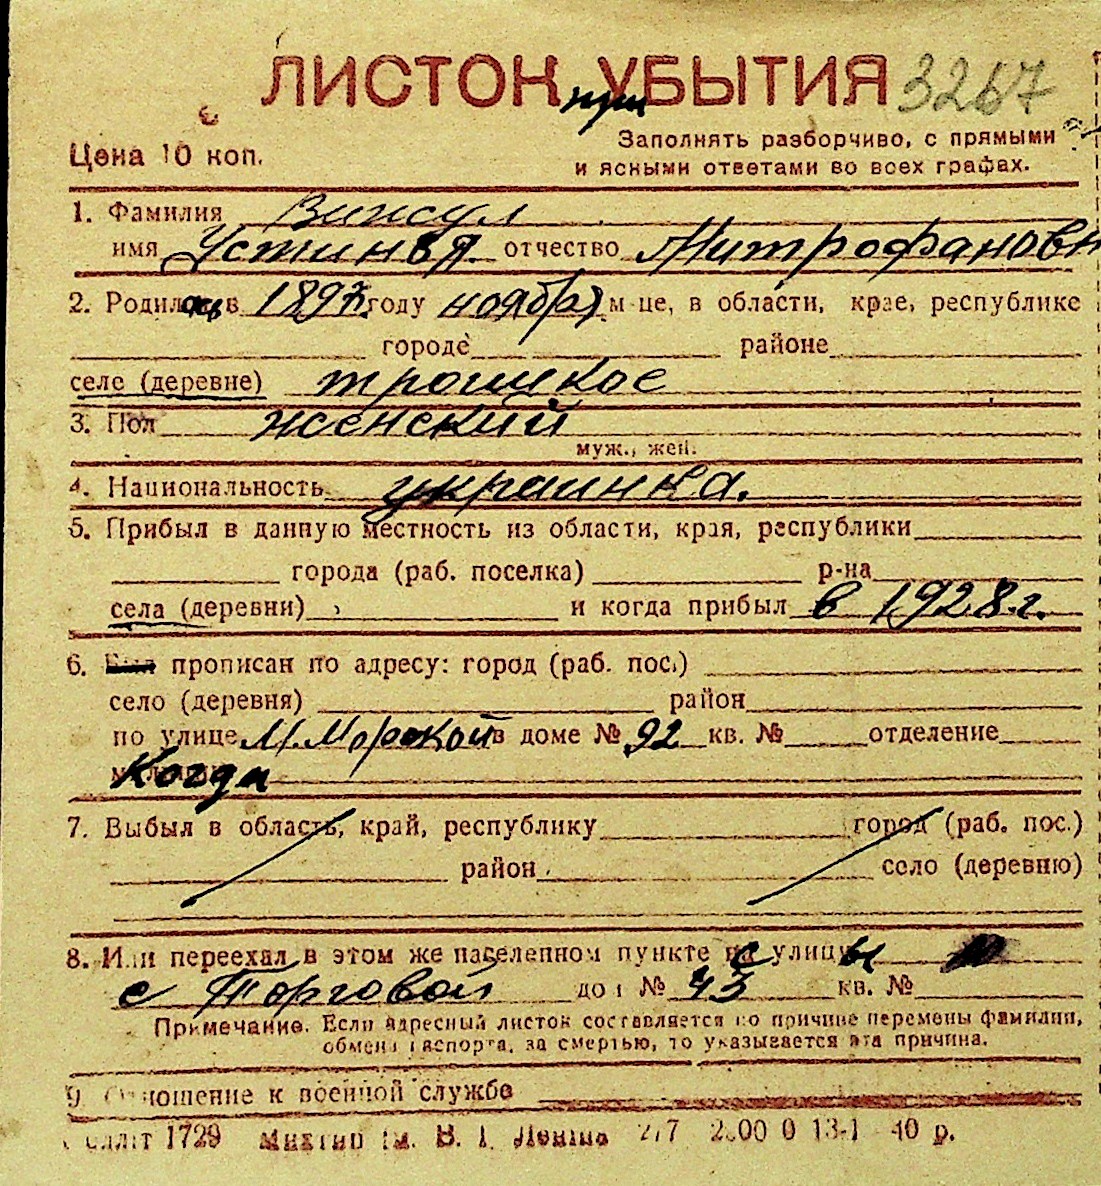 ЛИСТОК УБЫТИЯ 3267
Цена 10 коп. Заполнять разборчиво, с прямыми
и ясными ответами во всех графах.
1. Фамилия Винсул
имя Устинья отчество Митрофановн
2. Родилась в 1897 году ноябрь м-це, в области, крае, республике
городе районе
селе (деревне) троицкое
3. Пол женский
муж., жен.
4. Национальность украинка.
5. Прибыл в данную местность из области, края, республики
города (раб. поселка) р-на
села (деревни) и когда прибыл в 1928 г.
6. прописан по адресу: город (раб. пос.)
село (деревня) район
по улице М. Морской в доме № 92 кв. № отделение
Когда
7. Выбыл в область, край, республику город (раб. пос.)
район село (деревню)
8. Или переехал в этом же населенном пункте с улицы
с Торговой дом № 43 кв. №
Примечание. Если адресный листок составляется по причине перемены фамилии,
обмена паспорта, за смертью, то указывается эта причина.
9. Отношение к военной службе
1729 им. В. И. Ленина 40 р.